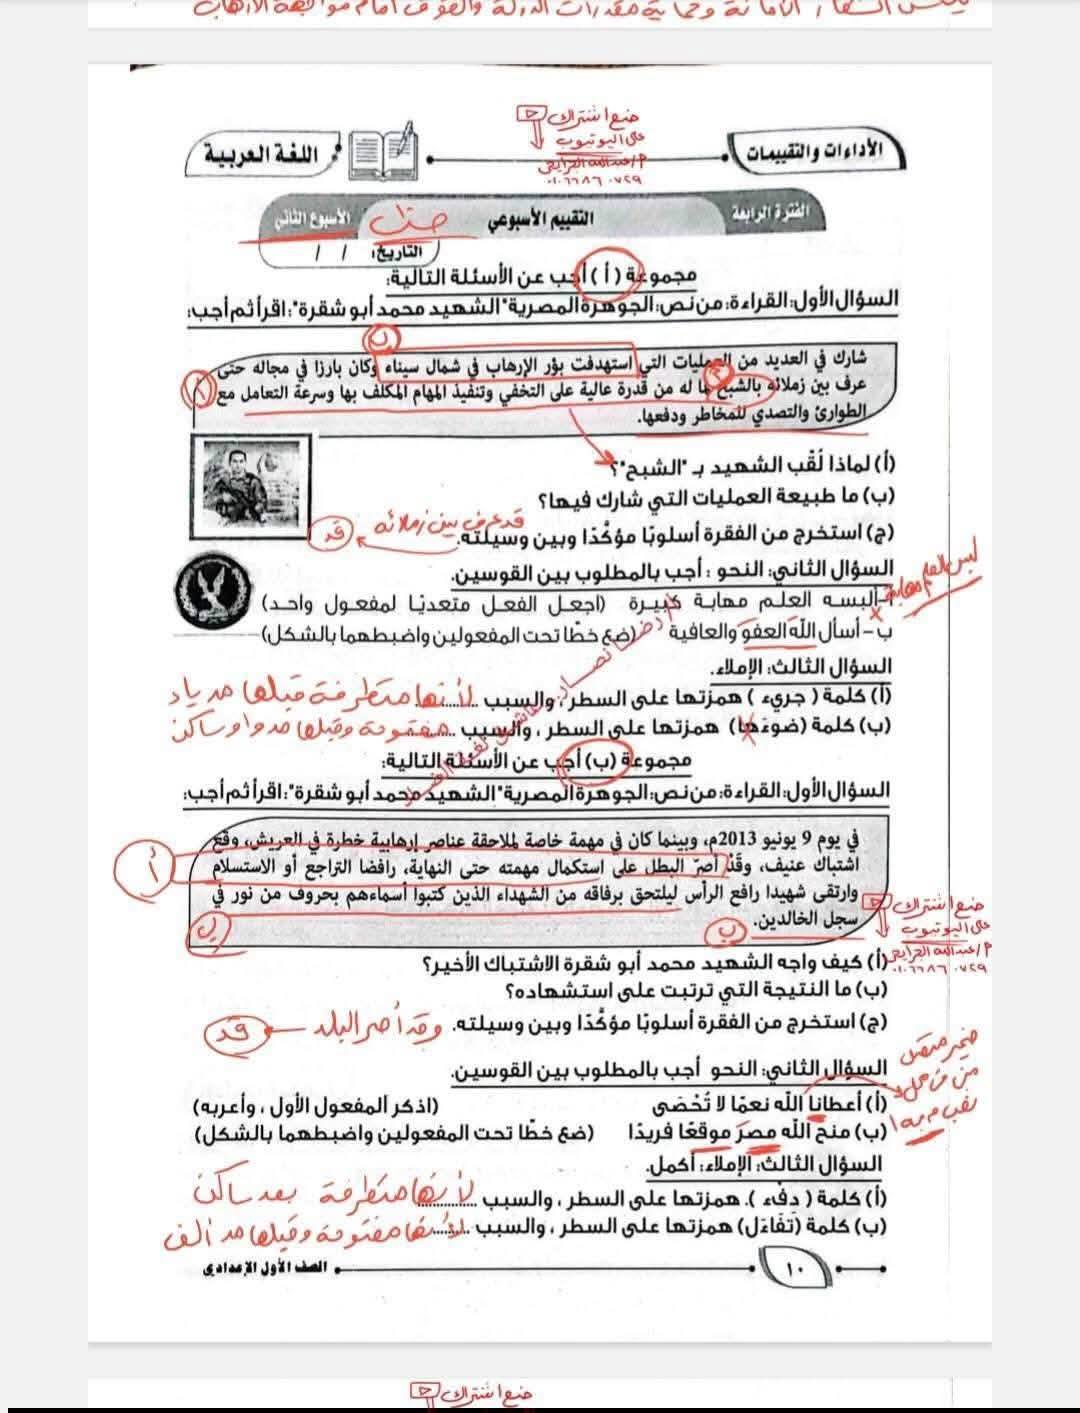 ضع اشتراك
على اليوتيوب
٠١٠٦٦٨٦٠٧٢٩
الأداءات والتقييمات
اللغة العربية
الفترة الرابعة
التقييم الأسبوعي
الأسبوع الثاني
التاريخ: / /
مجموعة (أ) أجب عن الأسئلة التالية:
السؤال الأول: القراءة: من نص: الجوهرة المصرية "الشهيد محمد أبو شقرة": اقرأ ثم أجب:
شارك في العديد من العمليات التي استهدفت بؤر الإرهاب في شمال سيناء وكان بارزا في مجاله حتى
عرف بين زملائه بالشبح لما له من قدرة عالية على التخفي وتنفيذ المهام المكلف بها وسرعة التعامل مع
الطوارئ والتصدي للمخاطر ودفعها.
(أ) لماذا لُقّب الشهيد بـ "الشبح"؟
(ب) ما طبيعة العمليات التي شارك فيها؟
(ج) استخرج من الفقرة أسلوبًا مؤكَّدًا وبين وسيلته.
قد عرف بين زملائه
قد
السؤال الثاني: النحو : أجب بالمطلوب بين القوسين.
أ- ألبسه العلم مهابة كبيرة (اجعل الفعل متعديًا لمفعول واحد)
لبس العلم مهابة
ب- أسأل اللهَ العفوَ والعافية (ضع خطًا تحت المفعولين واضبطهما بالشكل)
السؤال الثالث: الإملاء.
(أ) كلمة ( جريء ) همزتها على السطر، والسبب ........
لأنها متطرفة قبلها مد ياء
(ب) كلمة (ضوءَها) همزتها على السطر ، والسبب ........
مفتوحة وقبلها مد واو ساكن
مجموعة (ب) أجب عن الأسئلة التالية:
السؤال الأول: القراءة: من نص: الجوهرة المصرية "الشهيد محمد أبو شقرة": اقرأ ثم أجب:
في يوم 9 يونيو 2013م، وبينما كان في مهمة خاصة لملاحقة عناصر إرهابية خطرة في العريش، وقع
اشتباك عنيف، وقد أصرّ البطل على استكمال مهمته حتى النهاية، رافضا التراجع أو الاستسلام
وارتقى شهيدا رافع الرأس ليلتحق برفاقه من الشهداء الذين كتبوا أسماءهم بحروف من نور في
سجل الخالدين.
أ
ب
ضع اشتراك
على اليوتيوب
٠١٠٦٦٨٦٠٧٢٩
(أ) كيف واجه الشهيد محمد أبو شقرة الاشتباك الأخير؟
(ب) ما النتيجة التي ترتبت على استشهاده؟
(ج) استخرج من الفقرة أسلوبًا مؤكَّدًا وبين وسيلته.
قد
السؤال الثاني: النحو أجب بالمطلوب بين القوسين.
(أ) أعطانا الله نعمًا لا تُحْصَى (اذكر المفعول الأول ، وأعربه)
ضمير متصل
(ب) منح الله مصرَ موقعًا فريدًا (ضع خطًا تحت المفعولين واضبطهما بالشكل)
السؤال الثالث: الإملاء: أكمل.
(أ) كلمة ( دفْء ). همزتها على السطر ، والسبب ........
لأنها متطرفة بعد ساكن
(ب) كلمة (تَفَاءَل) همزتها على السطر ، والسبب ........
لأنها مفتوحة وقبلها مد ألف
١٠
الصف الأول الإعدادي
ضع اشتراك